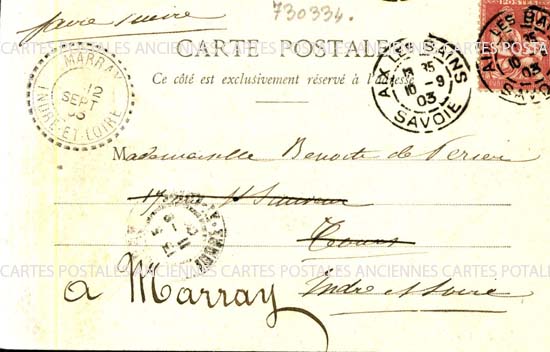 faire suivre
730334.
CARTE POSTALE
Ce côté est exclusivement réservé à l'adresse
MARRAY
12
SEPT
03
INDRE-ET-LOIRE
AIX-LES-BAINS
35
10-9
03
SAVOIE
AIX-LES-BAINS
35
10-9
03
Mademoiselle Benoite de
17
Tours
à Marray Indre et Loire
CARTES POSTALES ANCIENNES CARTES POSTALES ANCIENNES
CARTES POSTALES ANCIENNES CARTES POSTALES ANCIENNES